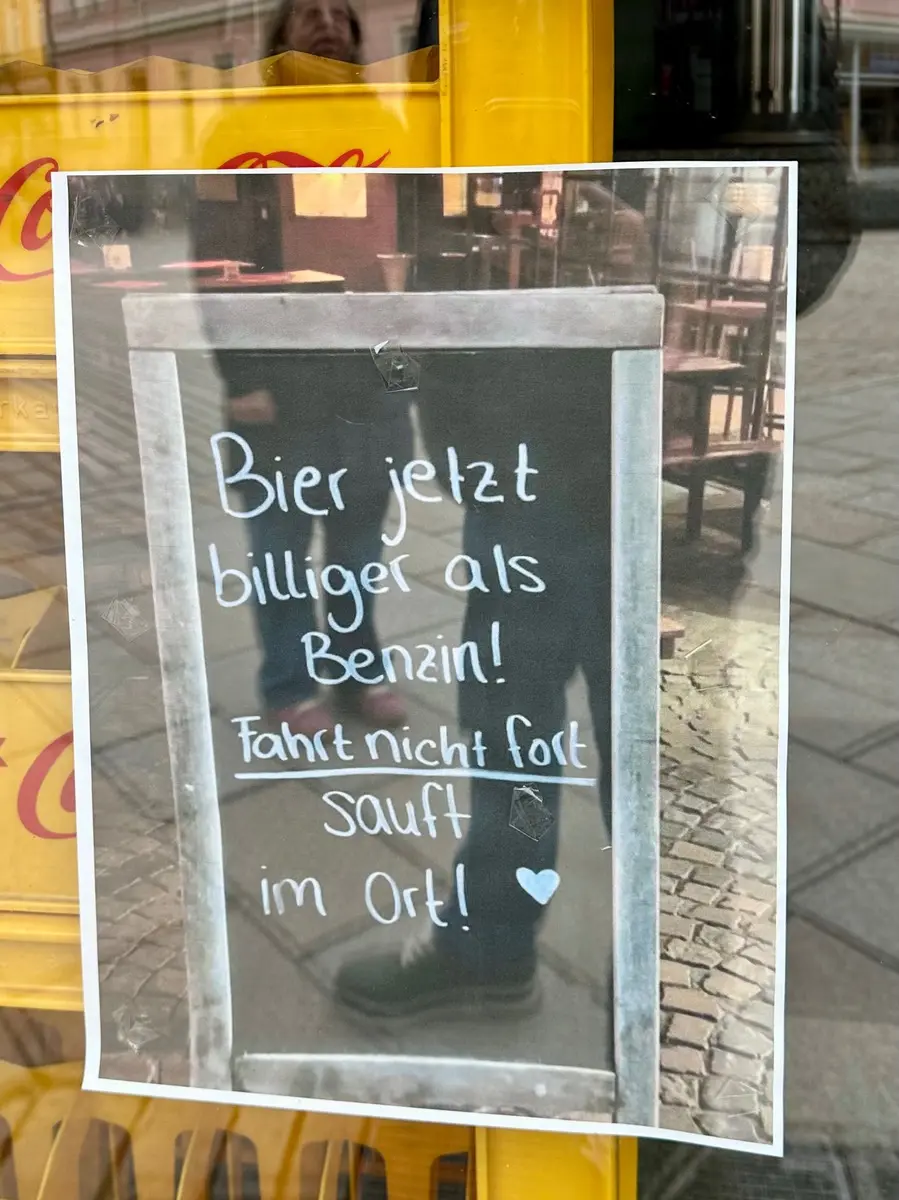 Bier jetzt
billiger als
Benzin!
Fahrt nicht fort
sauft
im Ort!